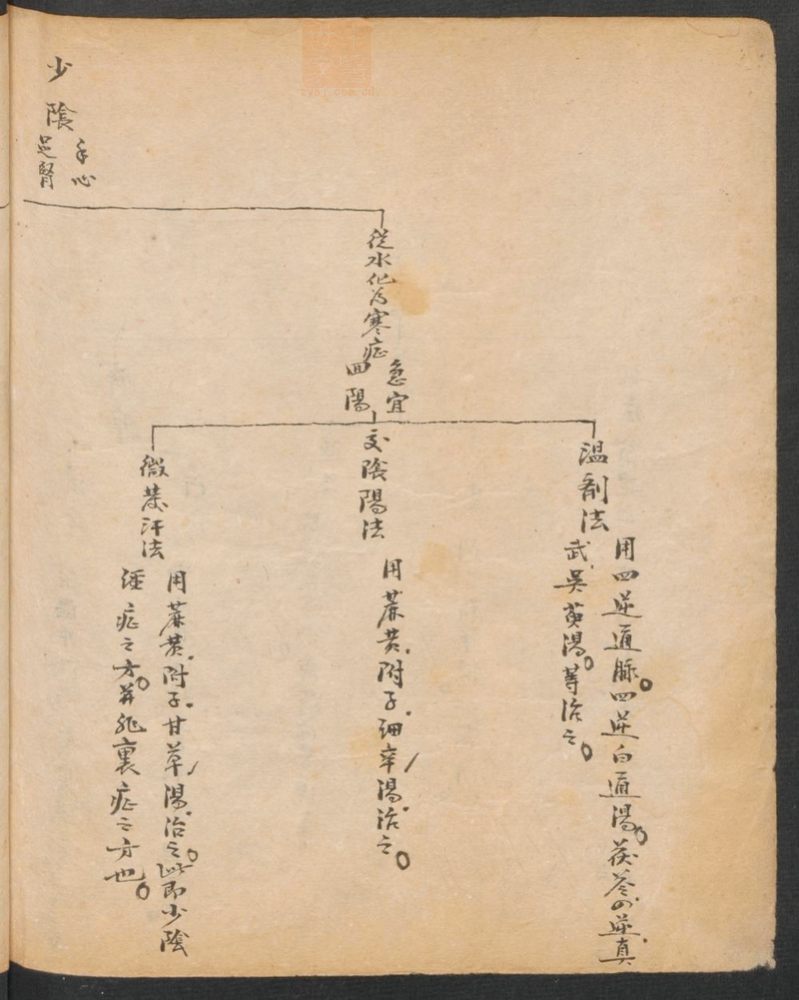 少陰
手心
足腎
從水化為寒症
急宜
回陽
温剤法
用四逆通脈。四逆白通湯。茯苓四逆真
武、吳萸湯。等治之。
交陰陽法
用蔴黄、附子、細辛湯治之。
微發汗法
用蔴黄、附子、甘草湯治之。此即少陰
經症之方。並非裏症之方也。